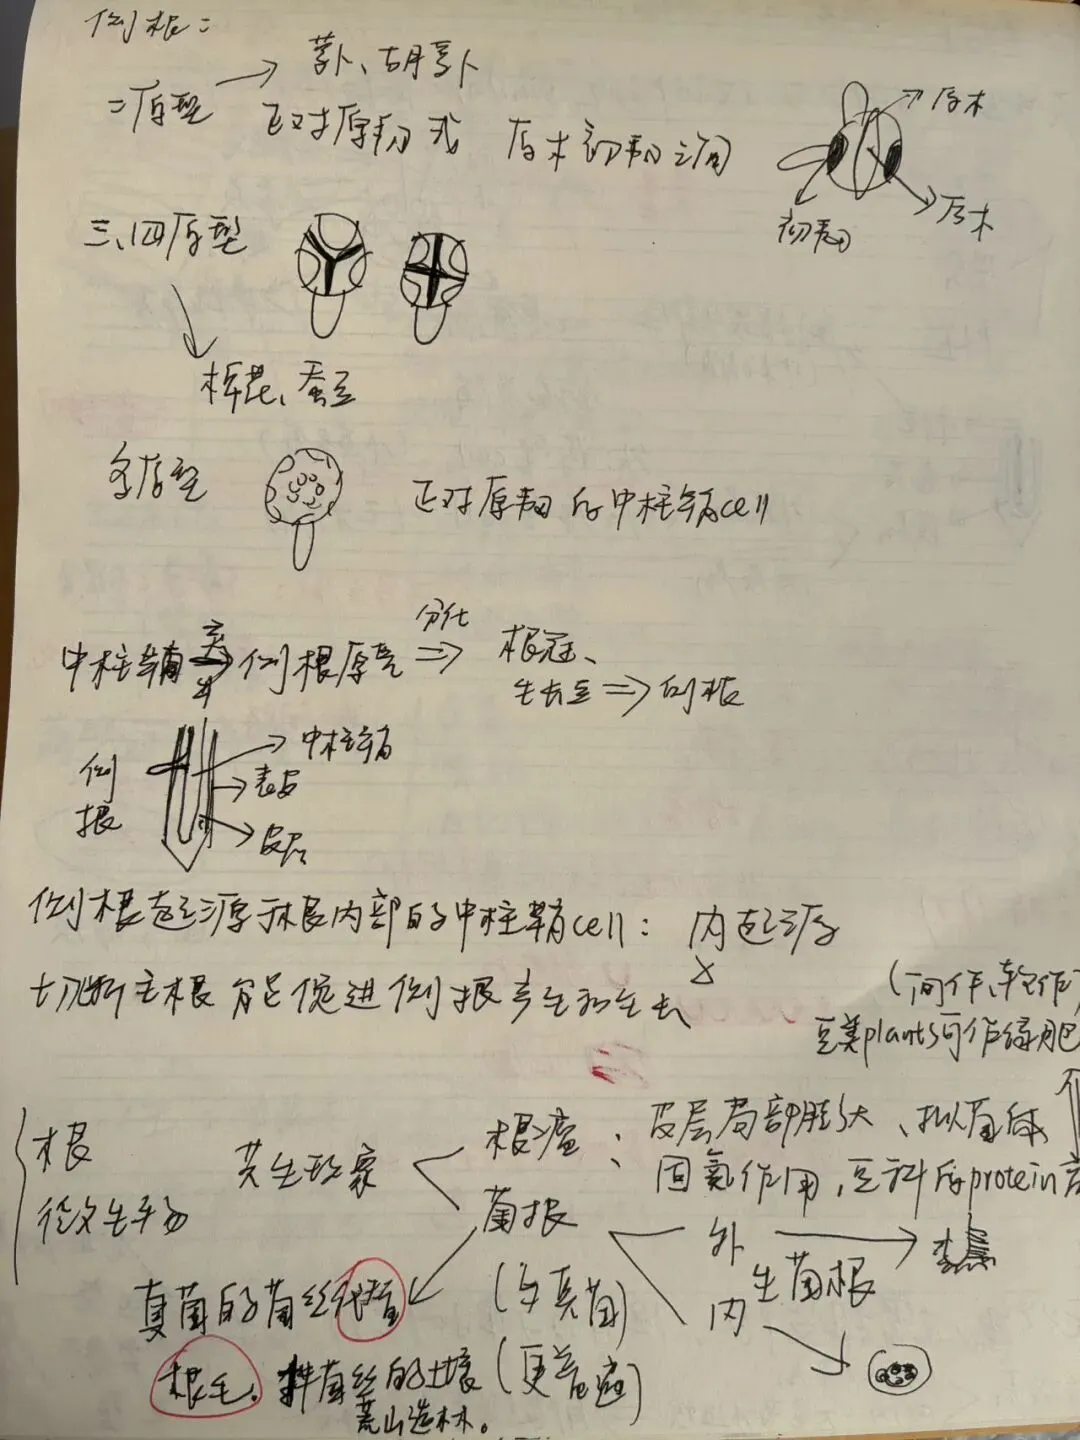 侧根：
二原型 → 萝卜、胡萝卜
正对原韧或 后木初韧之间
后木
后木
初韧
三、四原型
棉花、蚕豆
多原型
正对原韧的中柱鞘cell
中柱鞘 → 侧根原基 分化 ⇒ 根冠、
生长点 ⇒ 侧根
侧根
中柱鞘
表皮
皮层
侧根起源于根内部的中柱鞘cell： 内起源
切断主根能促进侧根产生和生长
(间作、轮作)
豆类plants可作绿肥
根
微生物
共生现象
根瘤： 皮层局部膨大、拟菌体
固氮作用，豆科的protein高
菌根
(与真菌)
(更普遍)
外
内
生菌根
真菌的菌丝代替
根毛。 菌丝的土壤
荒山造林。